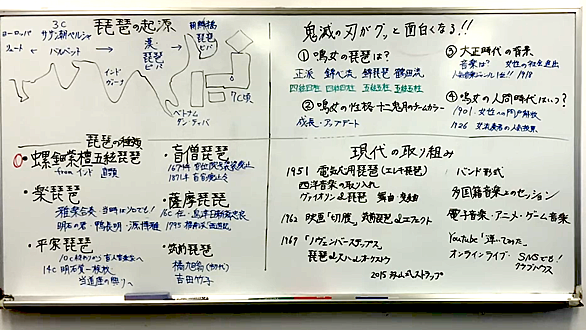 琵琶の起源
ヨーロッパ
3C
ササン朝ペルシャ
リュート
バルバット
漢
琵琶
ピパ
朝鮮
ピパ
インド
ヴィーナ
7C頃
ベトナム
ダン・ティバ
琵琶の種類
①螺鈿紫檀五絃琵琶
from インド 直頸
・楽琵琶
雅楽合奏
明石の君・鴨長明・源博雅
・平家琵琶
14C 明石覚一検校
当道座の興り
・盲僧琵琶
・薩摩琵琶
・筑前琵琶
橘旭翁(初代)
吉田竹子
鬼滅の刃がグッと面白くなる!!
①鳴女の琵琶は?
正派 錦心流 錦琵琶 鶴田流
四絃四柱 四絃四柱 五絃五柱 五絃五柱
②鳴女の性格 十二鬼月のチームカラー
成長・アップデート
③大正時代の背景
音楽は? 女性の社会進出
④鳴女の人間時代はいつ?
1901.
1926
現代の取り組み
1951 電気応用琵琶(エレキ琵琶)
西洋音楽の取り入れ
ヴァイオリン&琵琶
1962 映画「切腹」筑前琵琶&エフェクト
1967 「ノヴェンバーステップス
琵琶&尺八&オーケストラ
2015
バンド形式
多国籍音楽とのセッション
電子音楽・アニメ・ゲーム音楽
Youtube「弾いてみた」
オンラインライブ・SNSでも!
クラブハウス